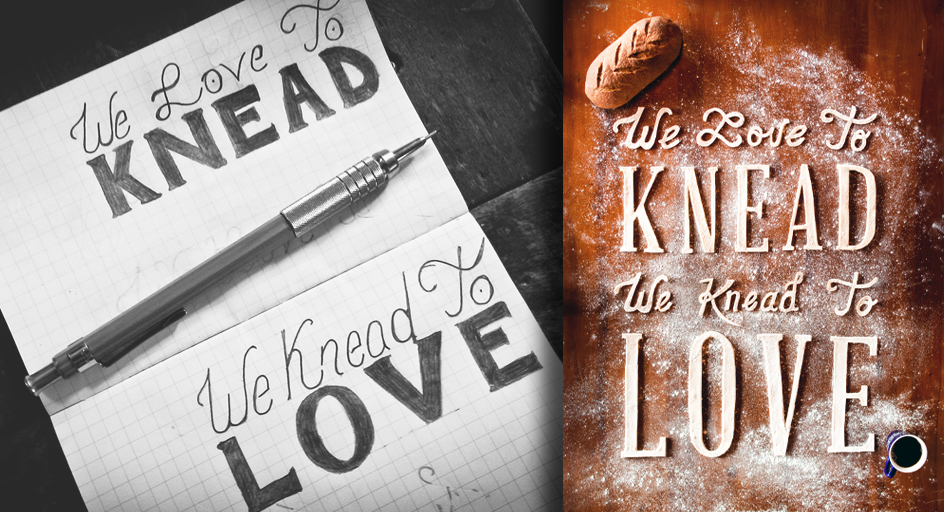 We Love To
KNEAD
We Knead To
LOVE
We Love To
KNEAD
We Knead To
LOVE